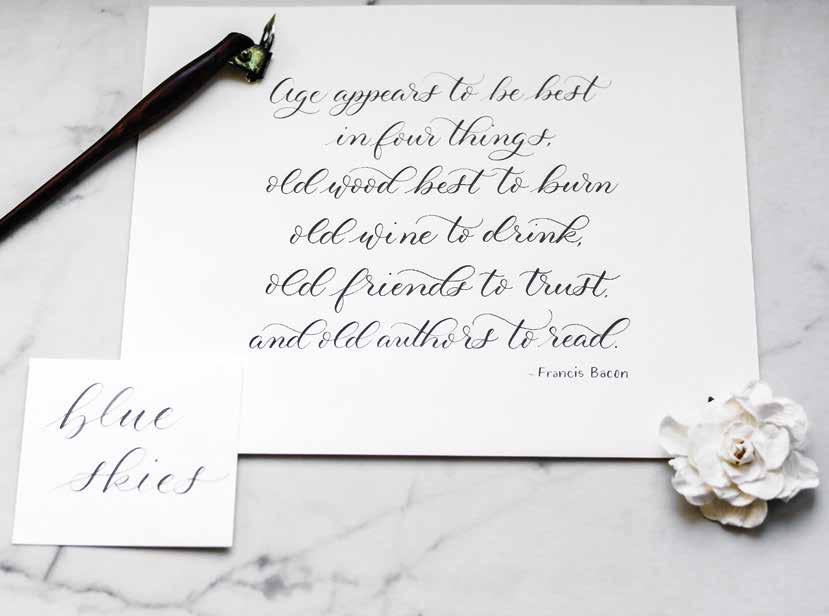 Age appears to be best
in four things,
old wood best to burn
old wine to drink,
old friends to trust,
and old authors to read.
- Francis Bacon
blue
skies